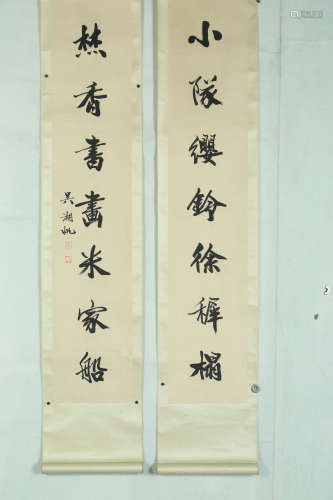 小隊纓鈴徐穉榻
焚香書畫米家船
吳湖帆